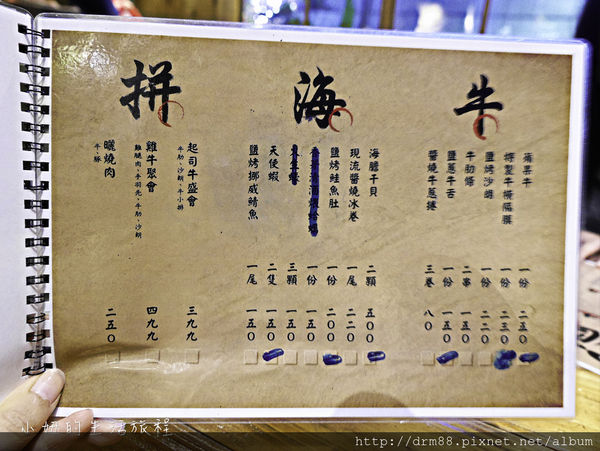 牛
一份 二五0
特製牛橫膈膜 一份 二三0
鹽烤沙朗 一份 二二0
牛肋條 二串 一五0
鹽蔥牛舌 一份 一五0
醬燒牛蔥捲 三卷 八0
海
海膽干貝 二顆 五00
現流醬燒冰卷 一尾 二00
鹽烤鮭魚肚 一份 二00
一份 一五0
三顆 一五0
天使蝦 二隻 一五0
鹽烤挪威鯖魚 一尾 一五0
拼
起司牛盛會 三九九
牛肋、沙朗、牛小排
雞牛聚會 四九九
雞腿肉、牛羽先、牛肋、沙朗
曬燒肉 二五0
牛、豚
小妞的生活旅程
http://drm88.pixnet.net/album